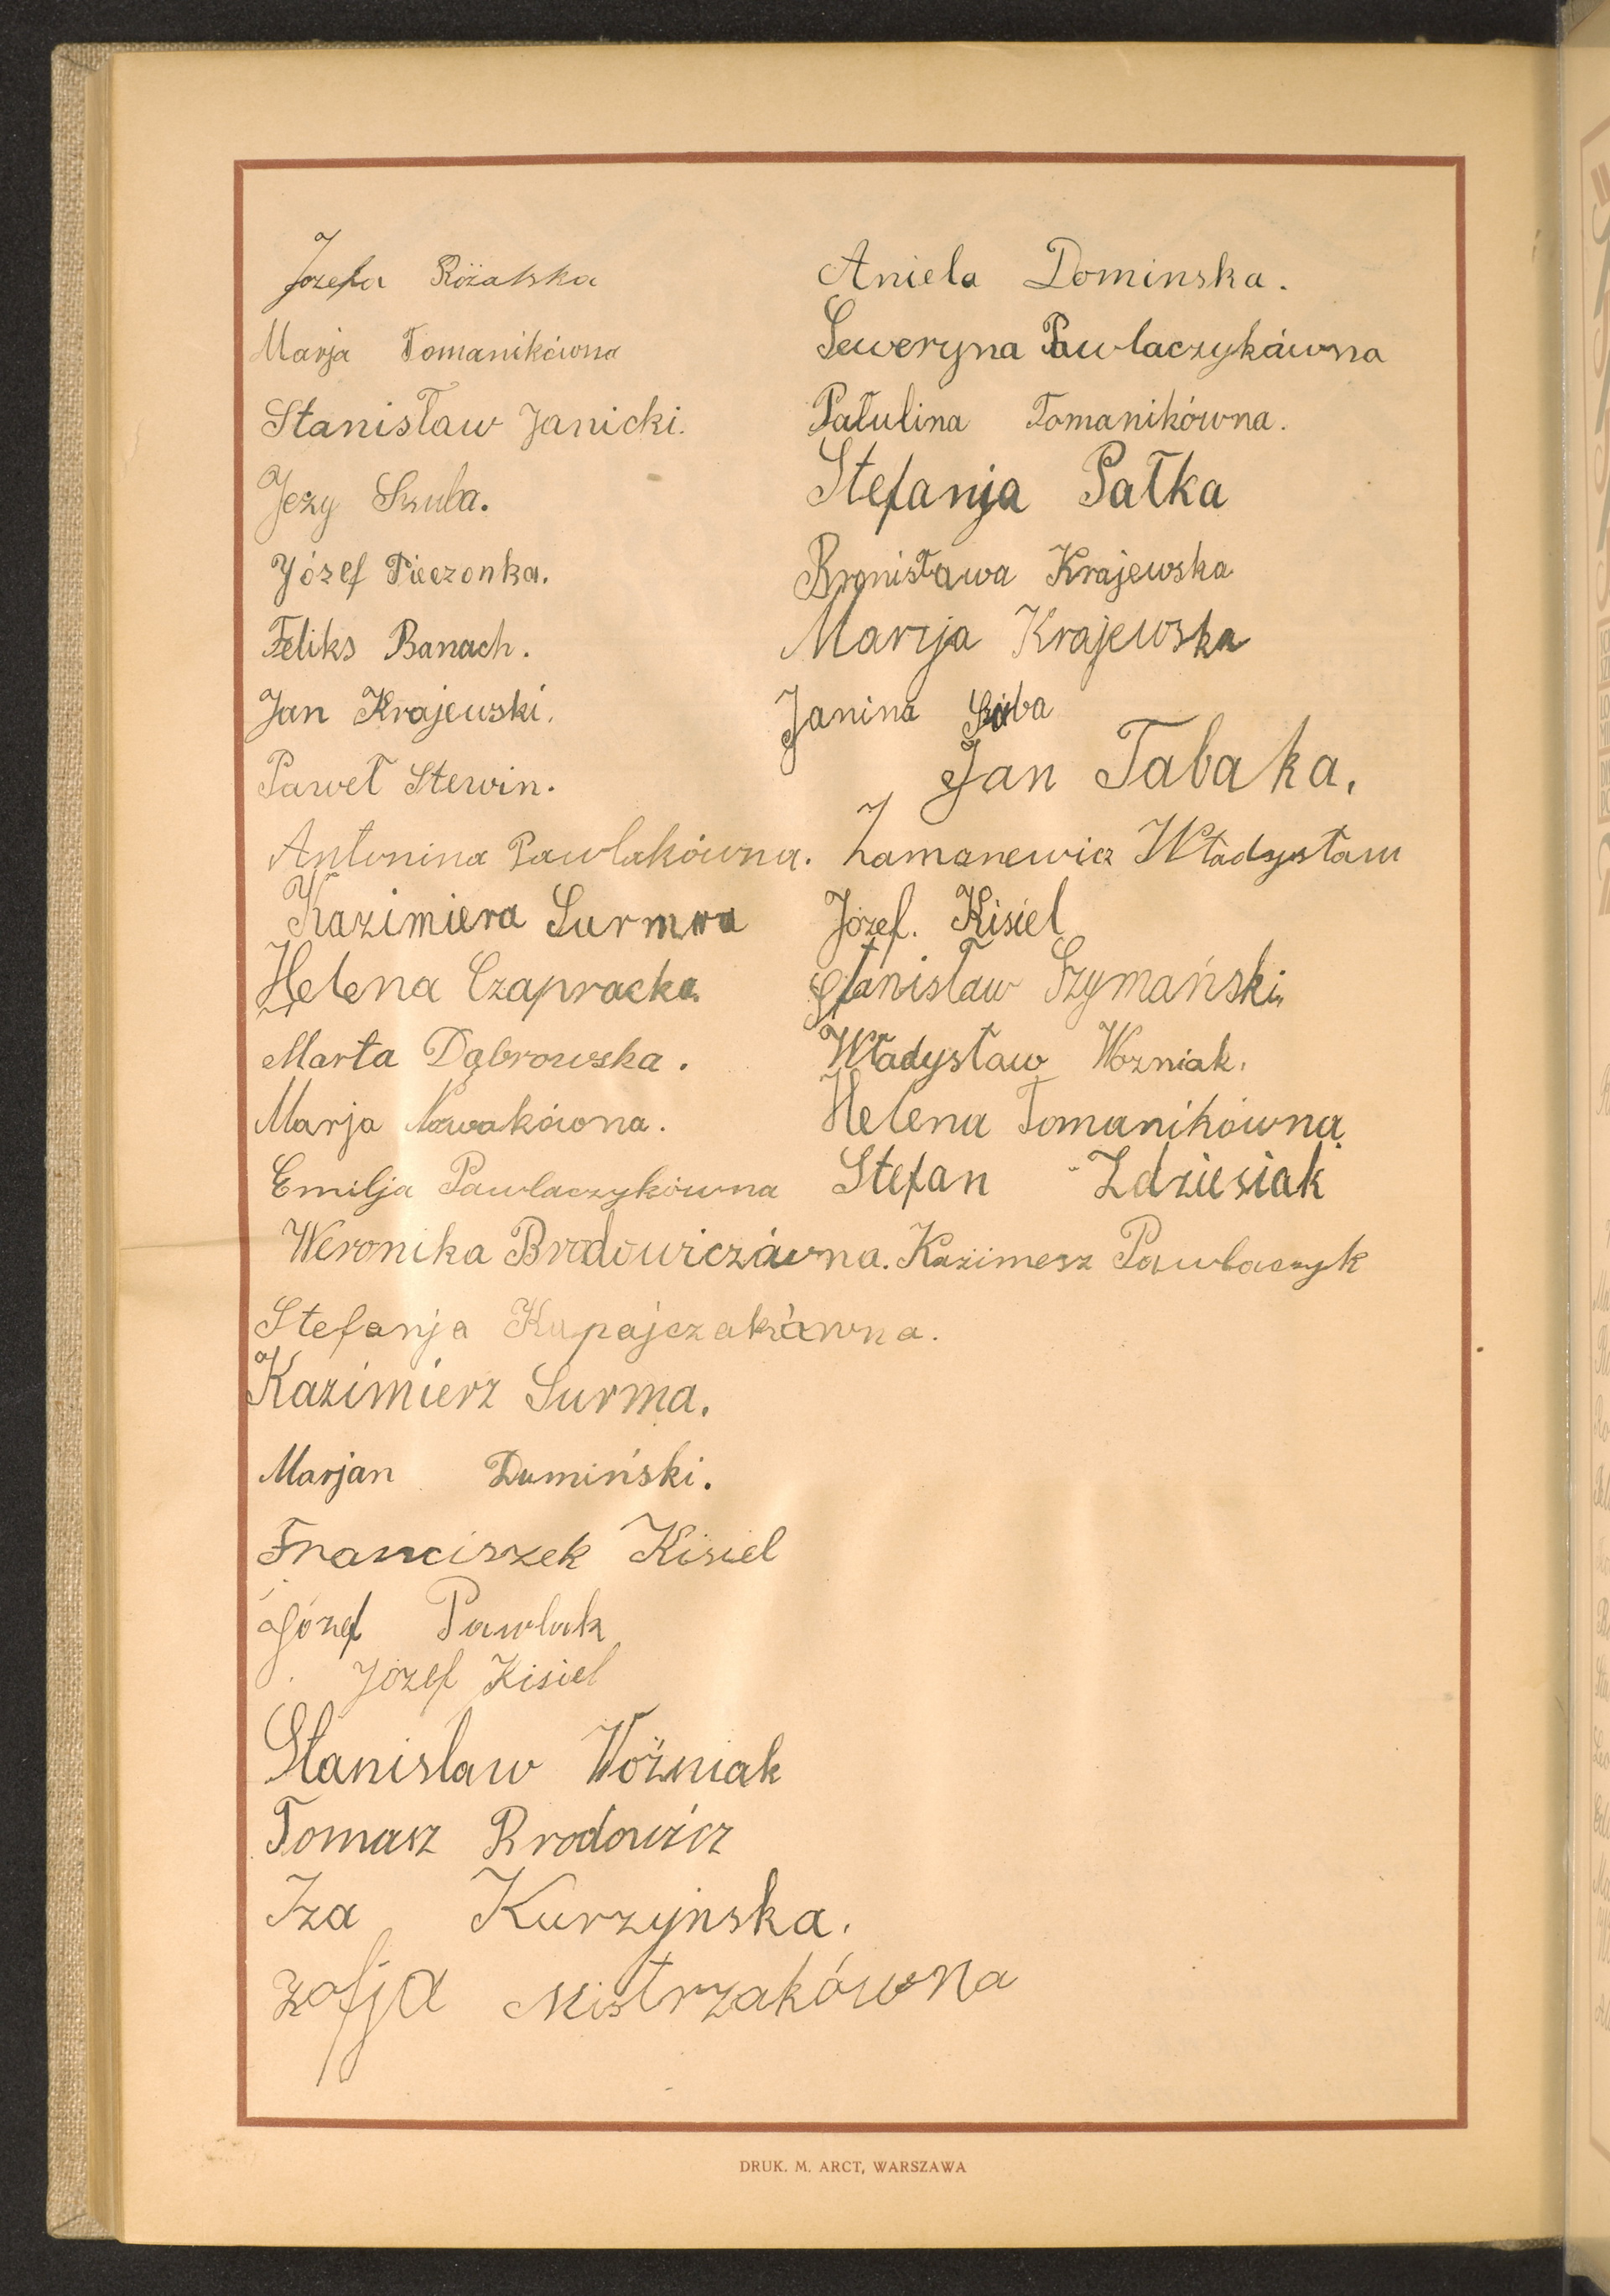 Józefa Różalska
Marja Tomanikówna
Stanisław Janicki.
Jeży Szuba.
Józef Pieczonka.
Feliks Banach.
Jan Krajewski.
Paweł Stewin.
Antonina Pawlakówna.
Kazimiera Surma
Helena Czapracka
Marta Dąbrowska.
Marja Nowakówna.
Emilja Pawlaczykówna
Weronika Brodowiczówna.
Stefanja Kupajczakówna.
Kazimierz Surma.
Marjan Dumiński.
Franciszek Kisiel
Józef Pawlak
Józef Kisiel
Stanislaw Woźniak
Tomasz Brodowicz
Iza Kurzyjnska.
Zofja Mistrzakówna
Aniela Dominska.
Seweryna Pawlaczykówna
Pałulina Tomanikówna.
Stefanja Pałka
Bronisława Krajewska
Marija Krajewska
Janina
Jan Tabaka.
Zamanewicz Władysław
Józef. Kisiel
Stanisław Szymański
Władysław Wozniak.
Helena Tomanikówna
Stefan Zdziesiak
Kazimesz Pawlaczyk
DRUK. M. ARCT, WARSZAWA